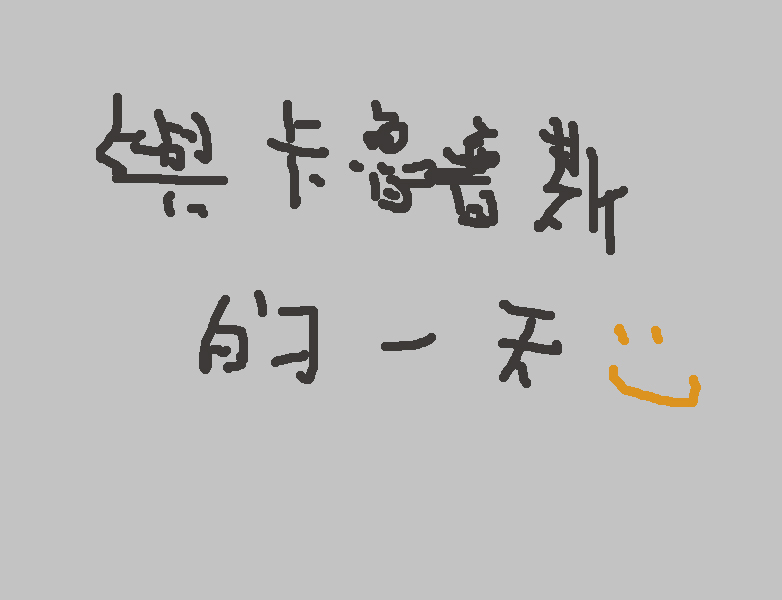 與卡魯魯斯
的一天